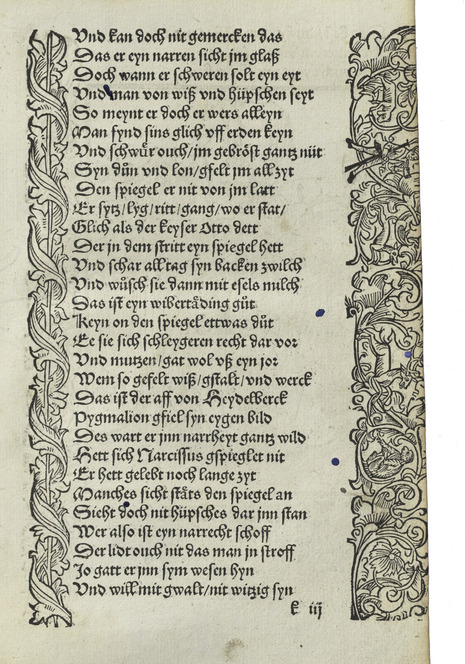 Vnd kan doch nit gemercken das
Das er eyn narren sicht jm glaß
Doch wann er schweren solt eyn eyt
Vnd man von wiß vnd hüpschen seyt
So meynt er doch er wers alleyn
Man fynd sins glich vff erden keyn
Vnd schwür ouch/jm gebröst gantz nüt
Syn dün vnd lon/gfelt jm all zyt
Den spiegel er nit von jm latt
Er sytz/lyg/ritt/gang/wo er stat/
Glich als der keyser Otto dett
Der jn dem stritt eyn spiegel hett
Vnd schar all tag syn backen zwilch
Vnd wüsch sie dann mit esels milch
Das ist eyn wibertäding güt
Keyn on den spiegel ettwas düt
Ee sie sich schleygeren recht dar vor
Vnd mutzen/gat wol vß eyn jor
Wem so gefelt wiß/gstalt/vnd werck
Das ist der aff von Heydelberck
Pygmalion gfiel syn eygen bild
Des wart er jnn narrheyt gantz wild
Hett sich Narcissus gspieglet nit
Er hett gelebt noch lange zyt
Manches sicht stäts den spiegel an
Sieht doch nit hüpsches dar jnn stan
Wer also ist eyn narrecht schoff
Der lidt ouch nit das man jn stroff
Jo gatt er jnn sym wesen hyn
Vnd will mit gwalt/nit witzig syn
k iij